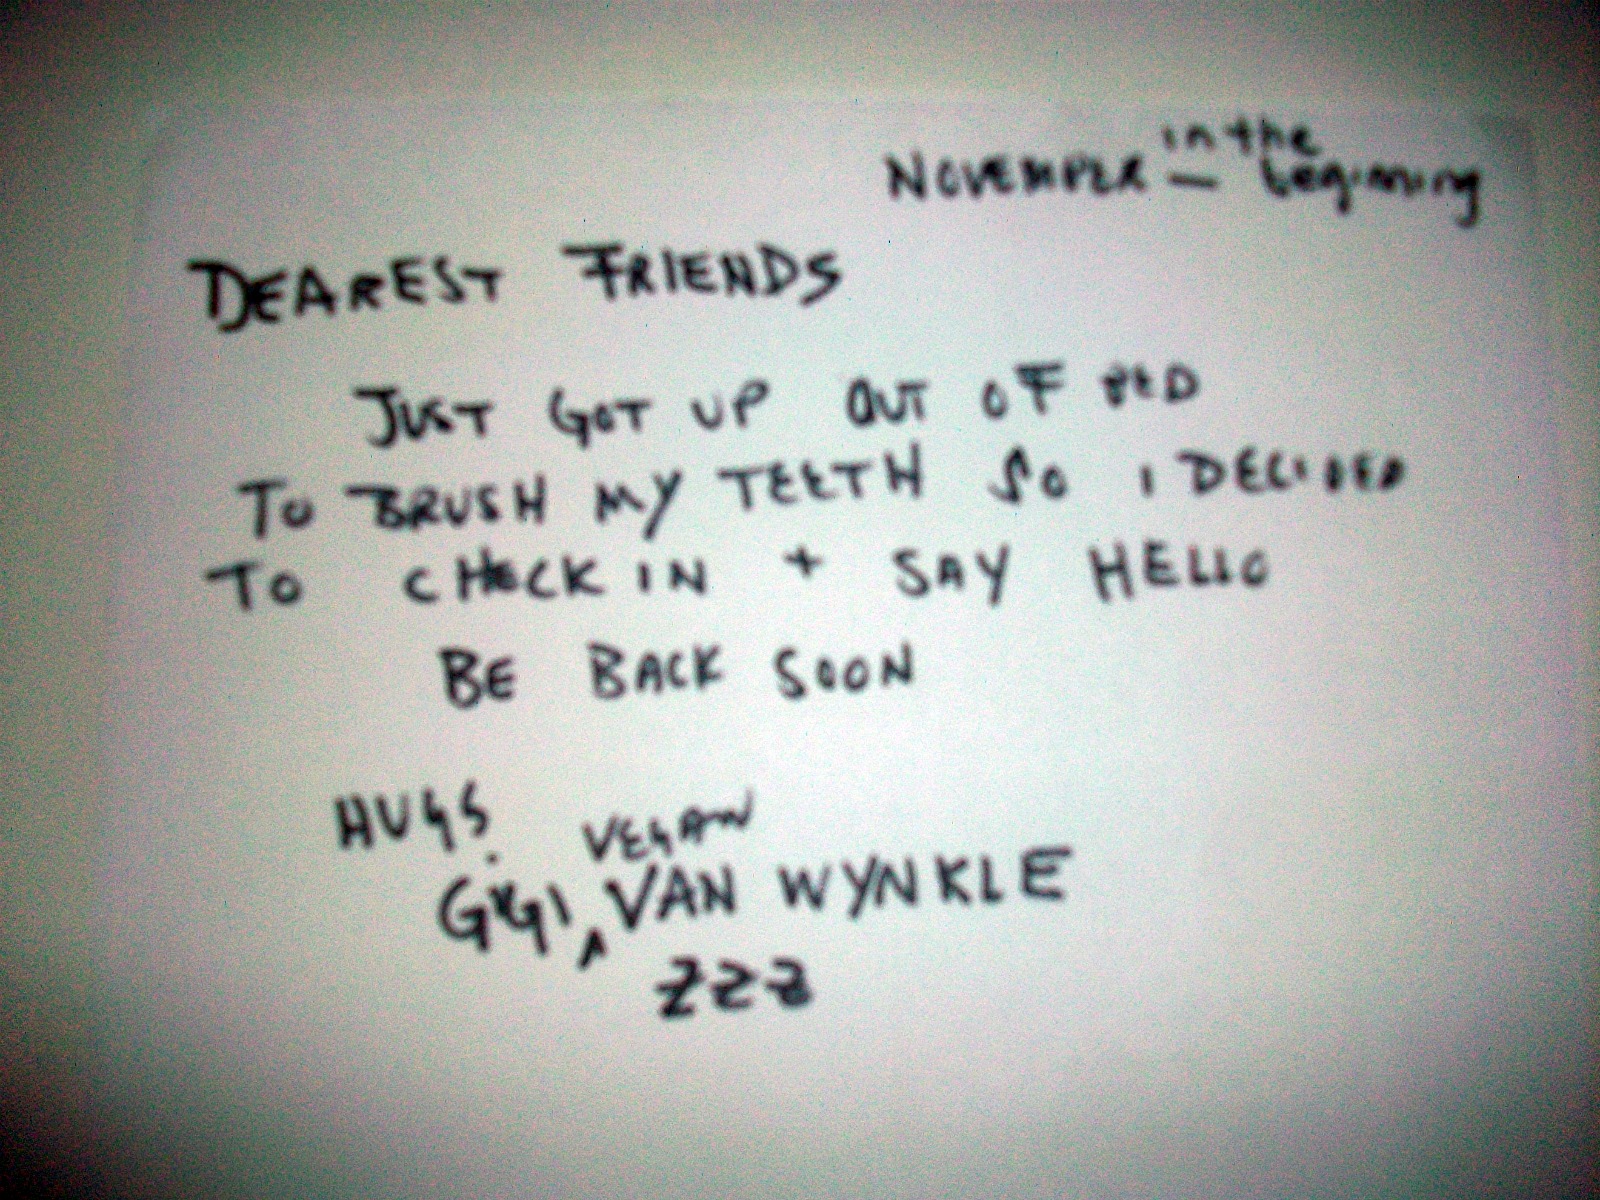 in the
NOVEMBER — beginning
DEAREST FRIENDS
JUST GOT UP OUT OF BED
TO BRUSH MY TEETH SO I DECIDED
TO CHECK IN + SAY HELLO
BE BACK SOON
HUGS
VEGAN
GIGI ^ VAN WYNKLE
ZZZ